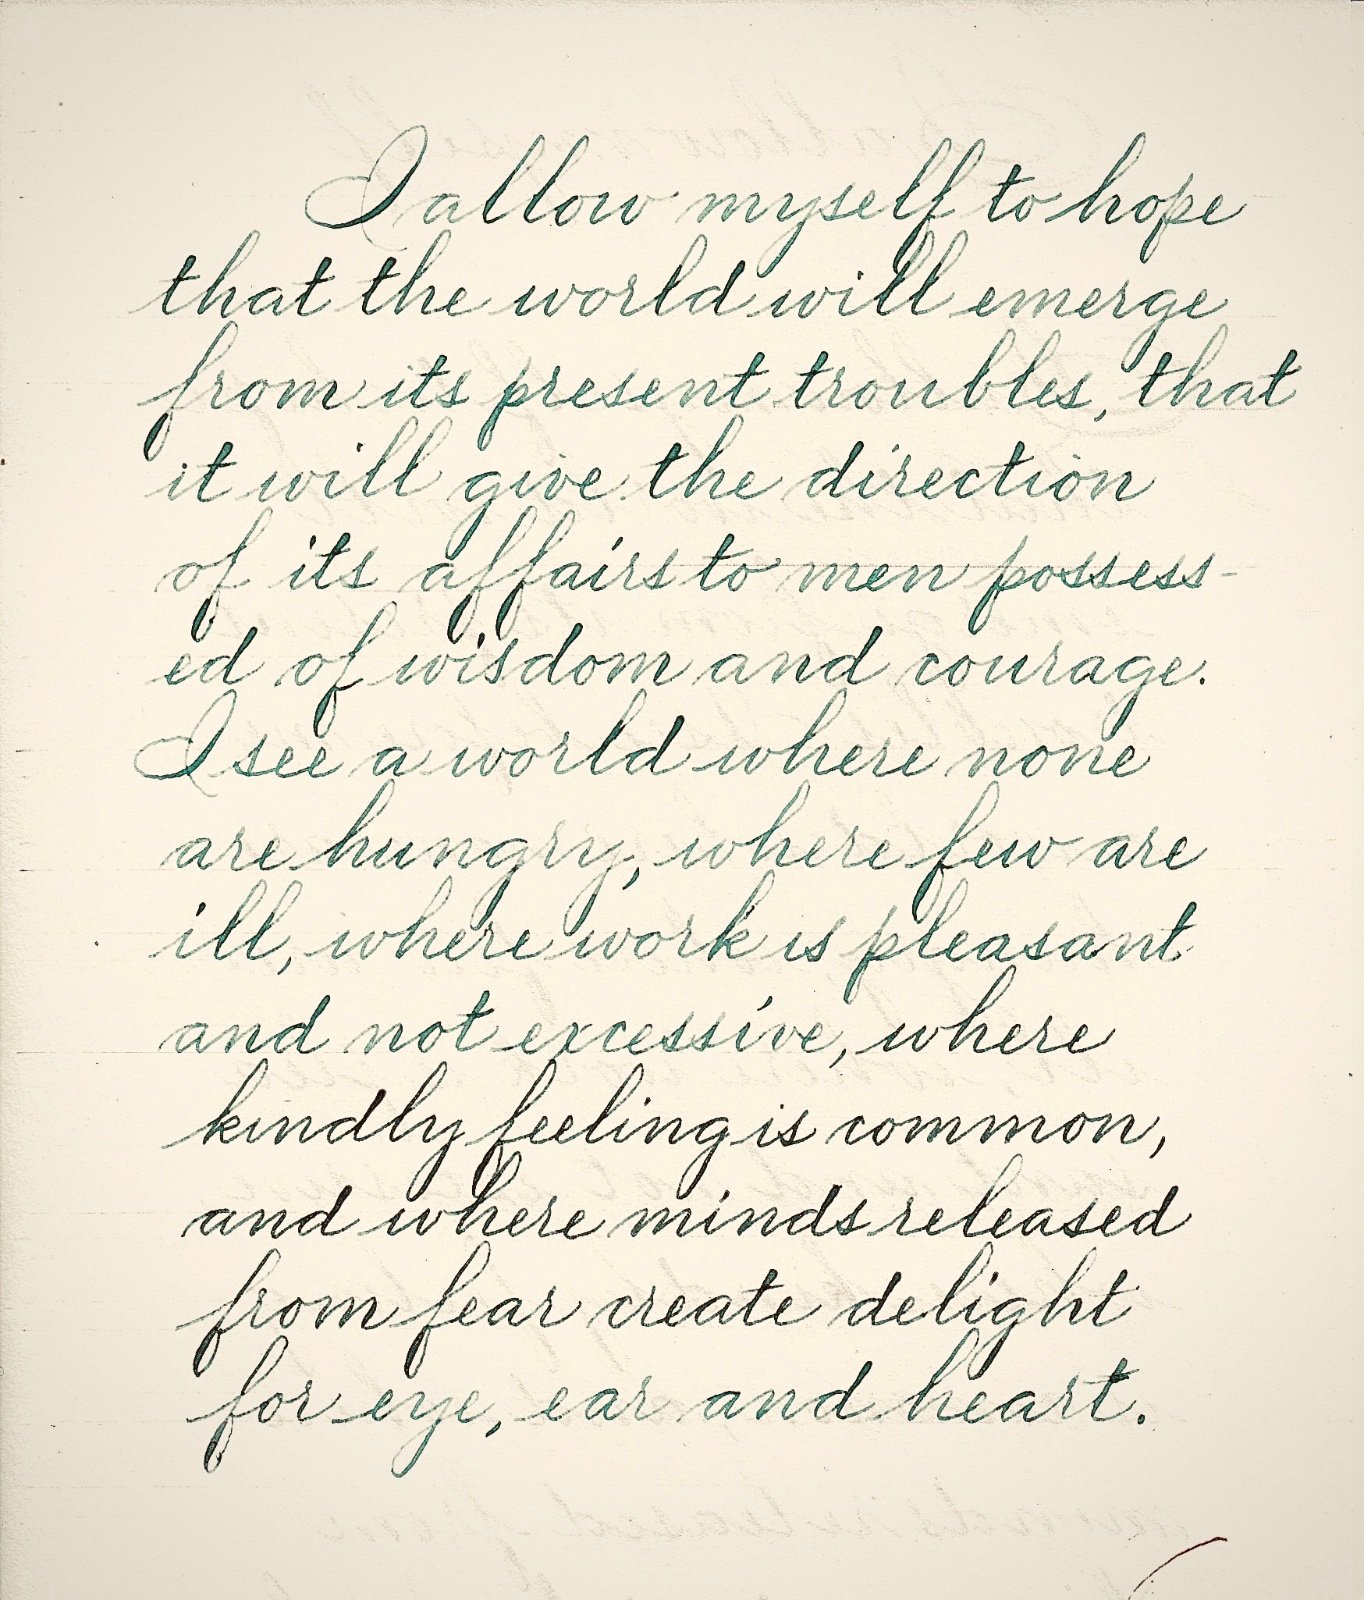 I allow myself to hope
that the world will emerge
from its present troubles, that
it will give the direction
of its affairs to men possess-
ed of wisdom and courage.
I see a world where none
are hungry, where few are
ill, where work is pleasant
and not excessive, where
kindly feeling is common,
and where minds released
from fear create delight
for eye, ear and heart.